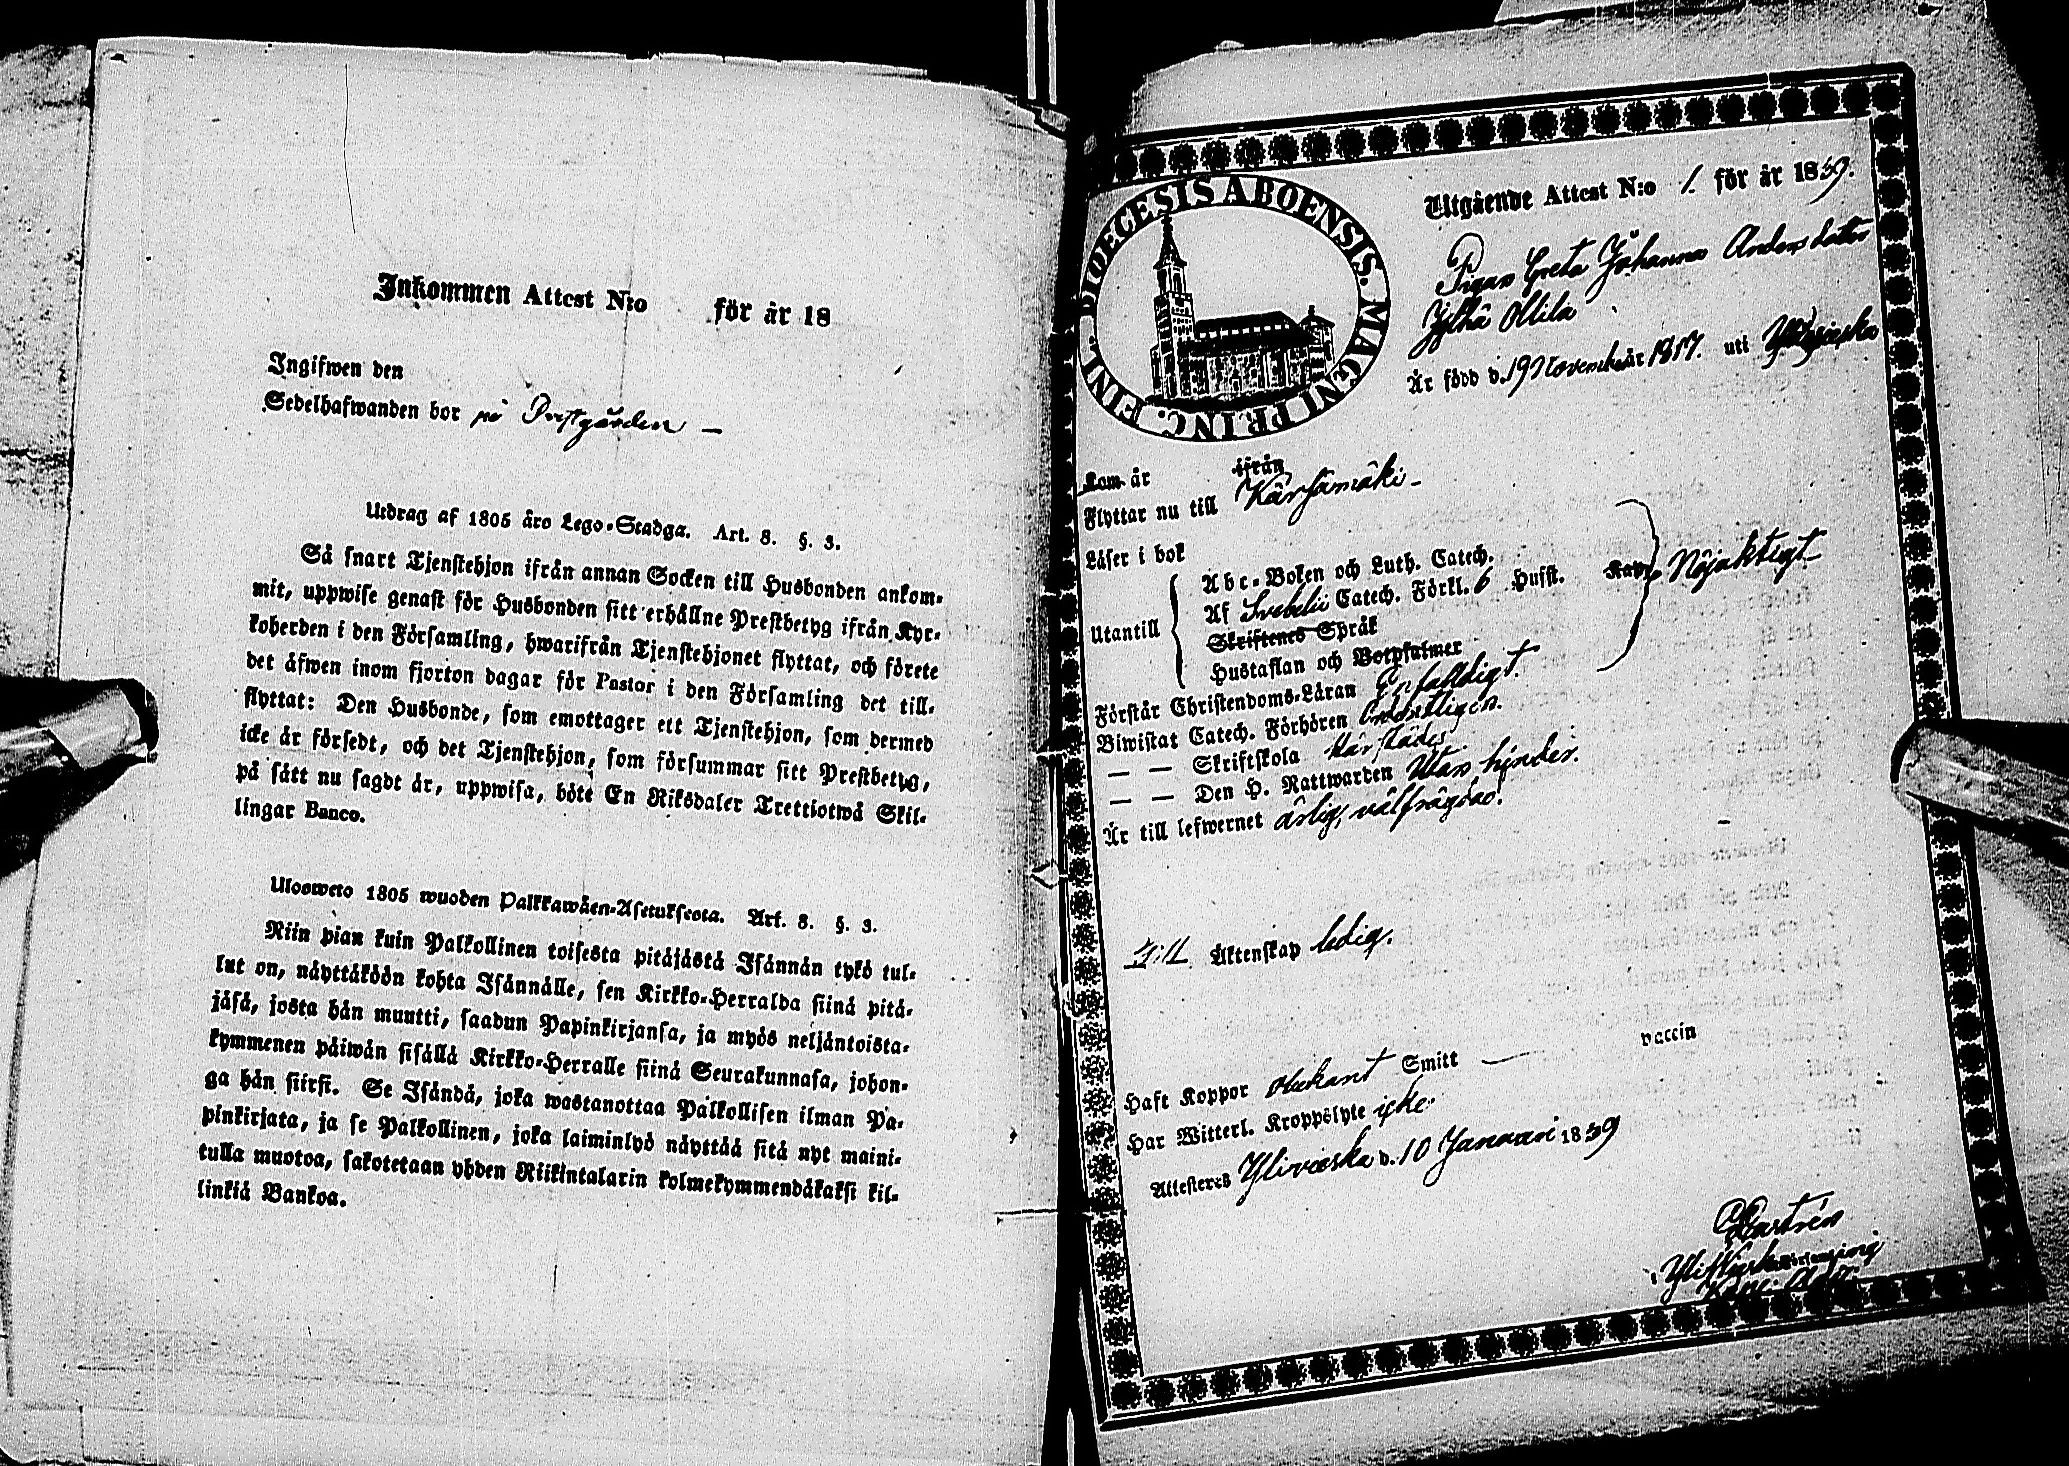 Inkommen Attest N:o för år 18
Ingifwen den
Sedelhafwanden bor på Prestgården —
Utdrag af 1805 års Lego-Stadga. Art. 8. §. 3.
Så snart Tjenstehjon ifrån annan Socken till Husbonden ankom-
mit, uppwise genast för Husbonden sitt erhållne Prestbetyg ifrån Kyr-
koherden i den Församling, hwarifrån Tjenstehjonet flyttat, och förete
det äfwen inom fjorton dagar för Pastor i den Församling det till-
flyttat: Den Husbonde, som emottager ett Tjenstehjon, som dermed
icke är försedt, och det Tjenstehjon, som försummar sitt Prestbetyg,
på sätt nu sagdt är, uppwisa, böte En Riksdaler Trettiotwå Skil-
lingar Banco.
Ulosweto 1805 wuoden Palkkawäen-Asetuksesta. Art. 8. §. 3.
Niin pian kuin Palkollinen toisesta pitäjästä Isännän tykö tul-
lut on, näyttäköön kohta Isännälle, sen Kirkko-Herralda siinä pitä-
jäsä, josta hän muutti, saadun Papinkirjansa, ja myös neljäntoista-
kymmenen päiwän sisällä Kirkko-Herralle siinä Seurakunnasa, johon-
ga hän siirsi. Se Isändä, joka wastanottaa Palkollisen ilman Pa-
pinkirjata, ja se Palkollinen, joka laiminlyö näyttää sitä nyt maini-
tulla muotoa, sakotetaan yhden Riikintalarin kolmekymmendäkaksi kil-
linkiä Bankoa.
DIOECESIS ABOENSIS. MAGNI PRINC. FINL.
Utgående Attest N:o 1. för år 1859.
Pigan Greta Johanna Andersdotter
Ollila
Är född d. 19 November år 1817. uti Ylivieska
Kom år ifrån
Flyttar nu till Kärsämäki -
Läser i bok
Utantill
Abc-Boken och Luth. Catech.
Af Svebelii Catech. Förkl. 6 Hufst. Kap.
Nöjaktigt
Skriftenes Språk
Hustaflan och Botpsalmer
Förstår Christendoms-Läran Enfaldigt.
Biwistat Catech. Förhören Ordentligen.
— — Skriftskola härstädes
— — Den H. Nattwarden Utan hinder.
Är till lefwernet ärlig, välfrägdad.
Till Äktenskap ledig.
Haft Koppor obekant Smitt — vaccin
Har Witterl. Kroppslyte icke.
Attesteres Ylivieska d. 10 Januari 1859
Castrén